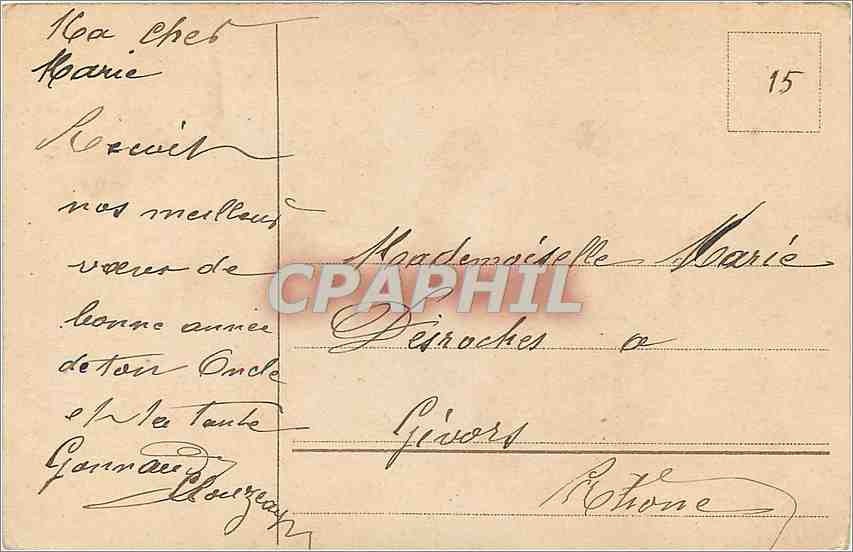 Ma cher
Marie
Recoit
nos meilleur
vœux de
bonne année
de ton Oncle
et ta tante
Gonnaud
15
Mademoiselle Marie
Désroches a
Gívors
Rhone
CPAPHIL